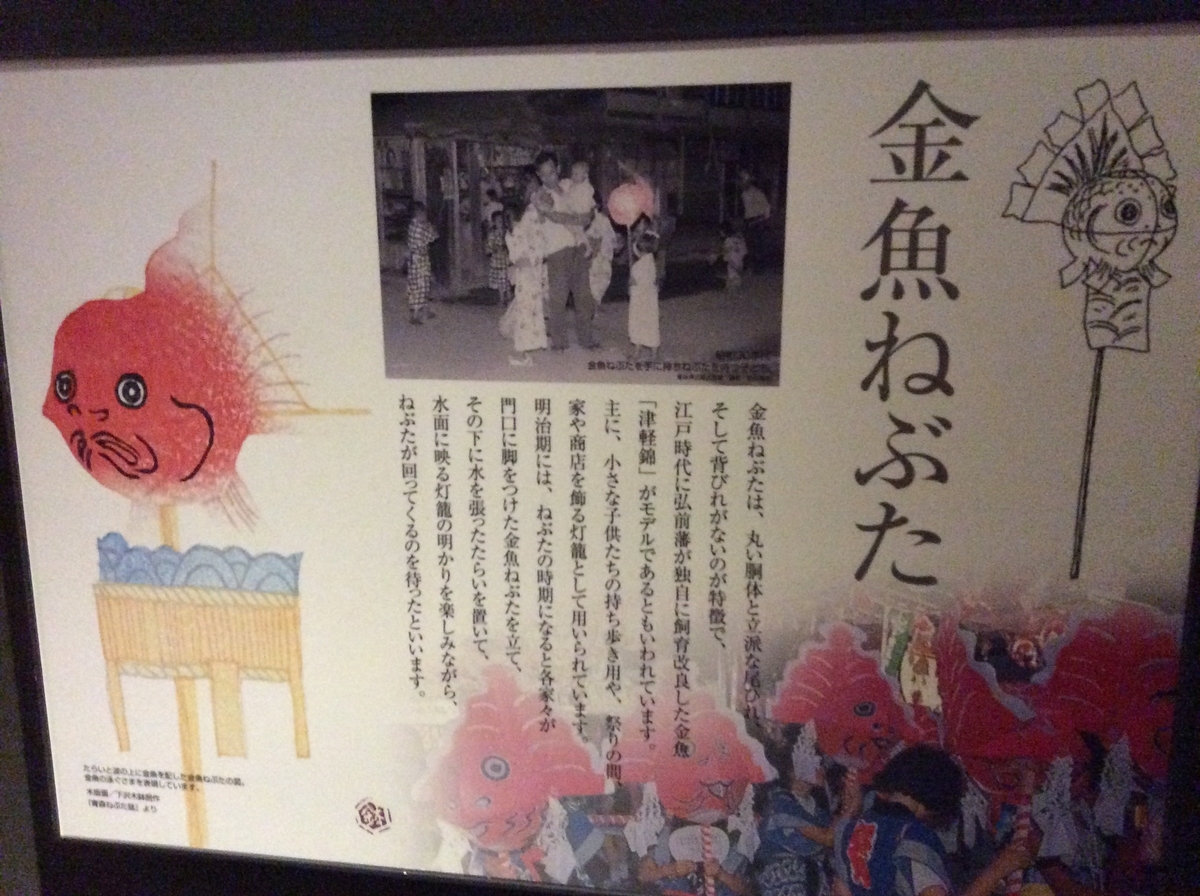 金魚ねぶた
金魚ねぶたは、丸い胴体と立派な尾ひれ、
そして背びれがないのが特徴で、
江戸時代に弘前藩が独自に飼育改良した金魚
「津軽錦」がモデルであるともいわれています。
主に、小さな子供たちの持ち歩き用や、祭りの間、
家や商店を飾る灯籠として用いられています。
明治期には、ねぶたの時期になると各家々が
門口に脚をつけた金魚ねぶたを立て、
その下に水を張ったたらいを置いて、
水面に映る灯籠の明かりを楽しみながら、
ねぶたが回ってくるのを待ったといいます。
金魚ねぶたを手に持ちねぶたを待つ子ども
たらいと波の上に金魚を配した金魚ねぶたの図。
金魚の泳ぐさまを表現しています。
木版画／下沢木鉢郎作
「青森ねぶた誌」より